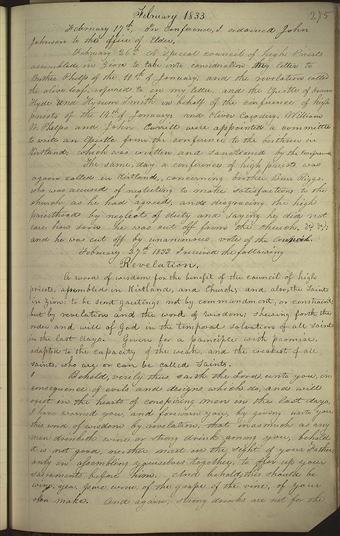 February 1833
275
February 17th. In Conference, I ordained John
Johnson to the office of Elder.
February 26th A Special council of High Priests
assembled in Zion to take into consideration, my letter to
Brother Phelps of the 11th of January, and the revelation called
the olive leaf, referred to in my letter, and the Epistle of Orson
Hyde and Hyrum Smith in behalf of the conference of high
priests of the 14th of January and Oliver Cowdery, William
W. Phelps and John Corrill were appointed a committee
to write an Epistle from the conference to the brethren in
Kirtland, which was written and sanctioned by the
The same day a conference of high priests was
again called in Kirtland, concerning brother Burr Riggs
who was accused of neglecting to make satisfaction to the
church, as he had agreed, and disgracing the high
priesthood by neglect of duty and saying he did not
care how soon he was cut off from the church,
and he was cut off by unanimous vote of the council.
February 27th 1833 I received the following
Revelation,
A word of wisdom for the benefit of the council of high
priests, assembled in Kirtland, and Church; and also, the Saints
in Zion: to be sent greeting; not by commandment, or constraint
but by revelation and the word of wisdom; shewing forth the
order and will of God in the temporal salvation of all saints
in the last days. Given for a principle with promise,
adapted to the capacity of the weak, and the weakest of all
saints, who are or can be called Saints.
Behold, verily thus saith the Lord unto you, in
consequence of evils and designs which do, and will
exist in the hearts of conspiring men in the last days,
I have warned you, and forewarn you, by giving unto you
this word of wisdom by revelation, that inasmuch as any
man drinketh wine or strong drink among you, behold
it is not good, neither meet in the sight of your Father
only in assembling yourselves together, to offer up your
sacraments before him. And behold, this should be
wine, yea pure wine, of the grape of the vine, of your
own make. And again, strong drinks are not for the